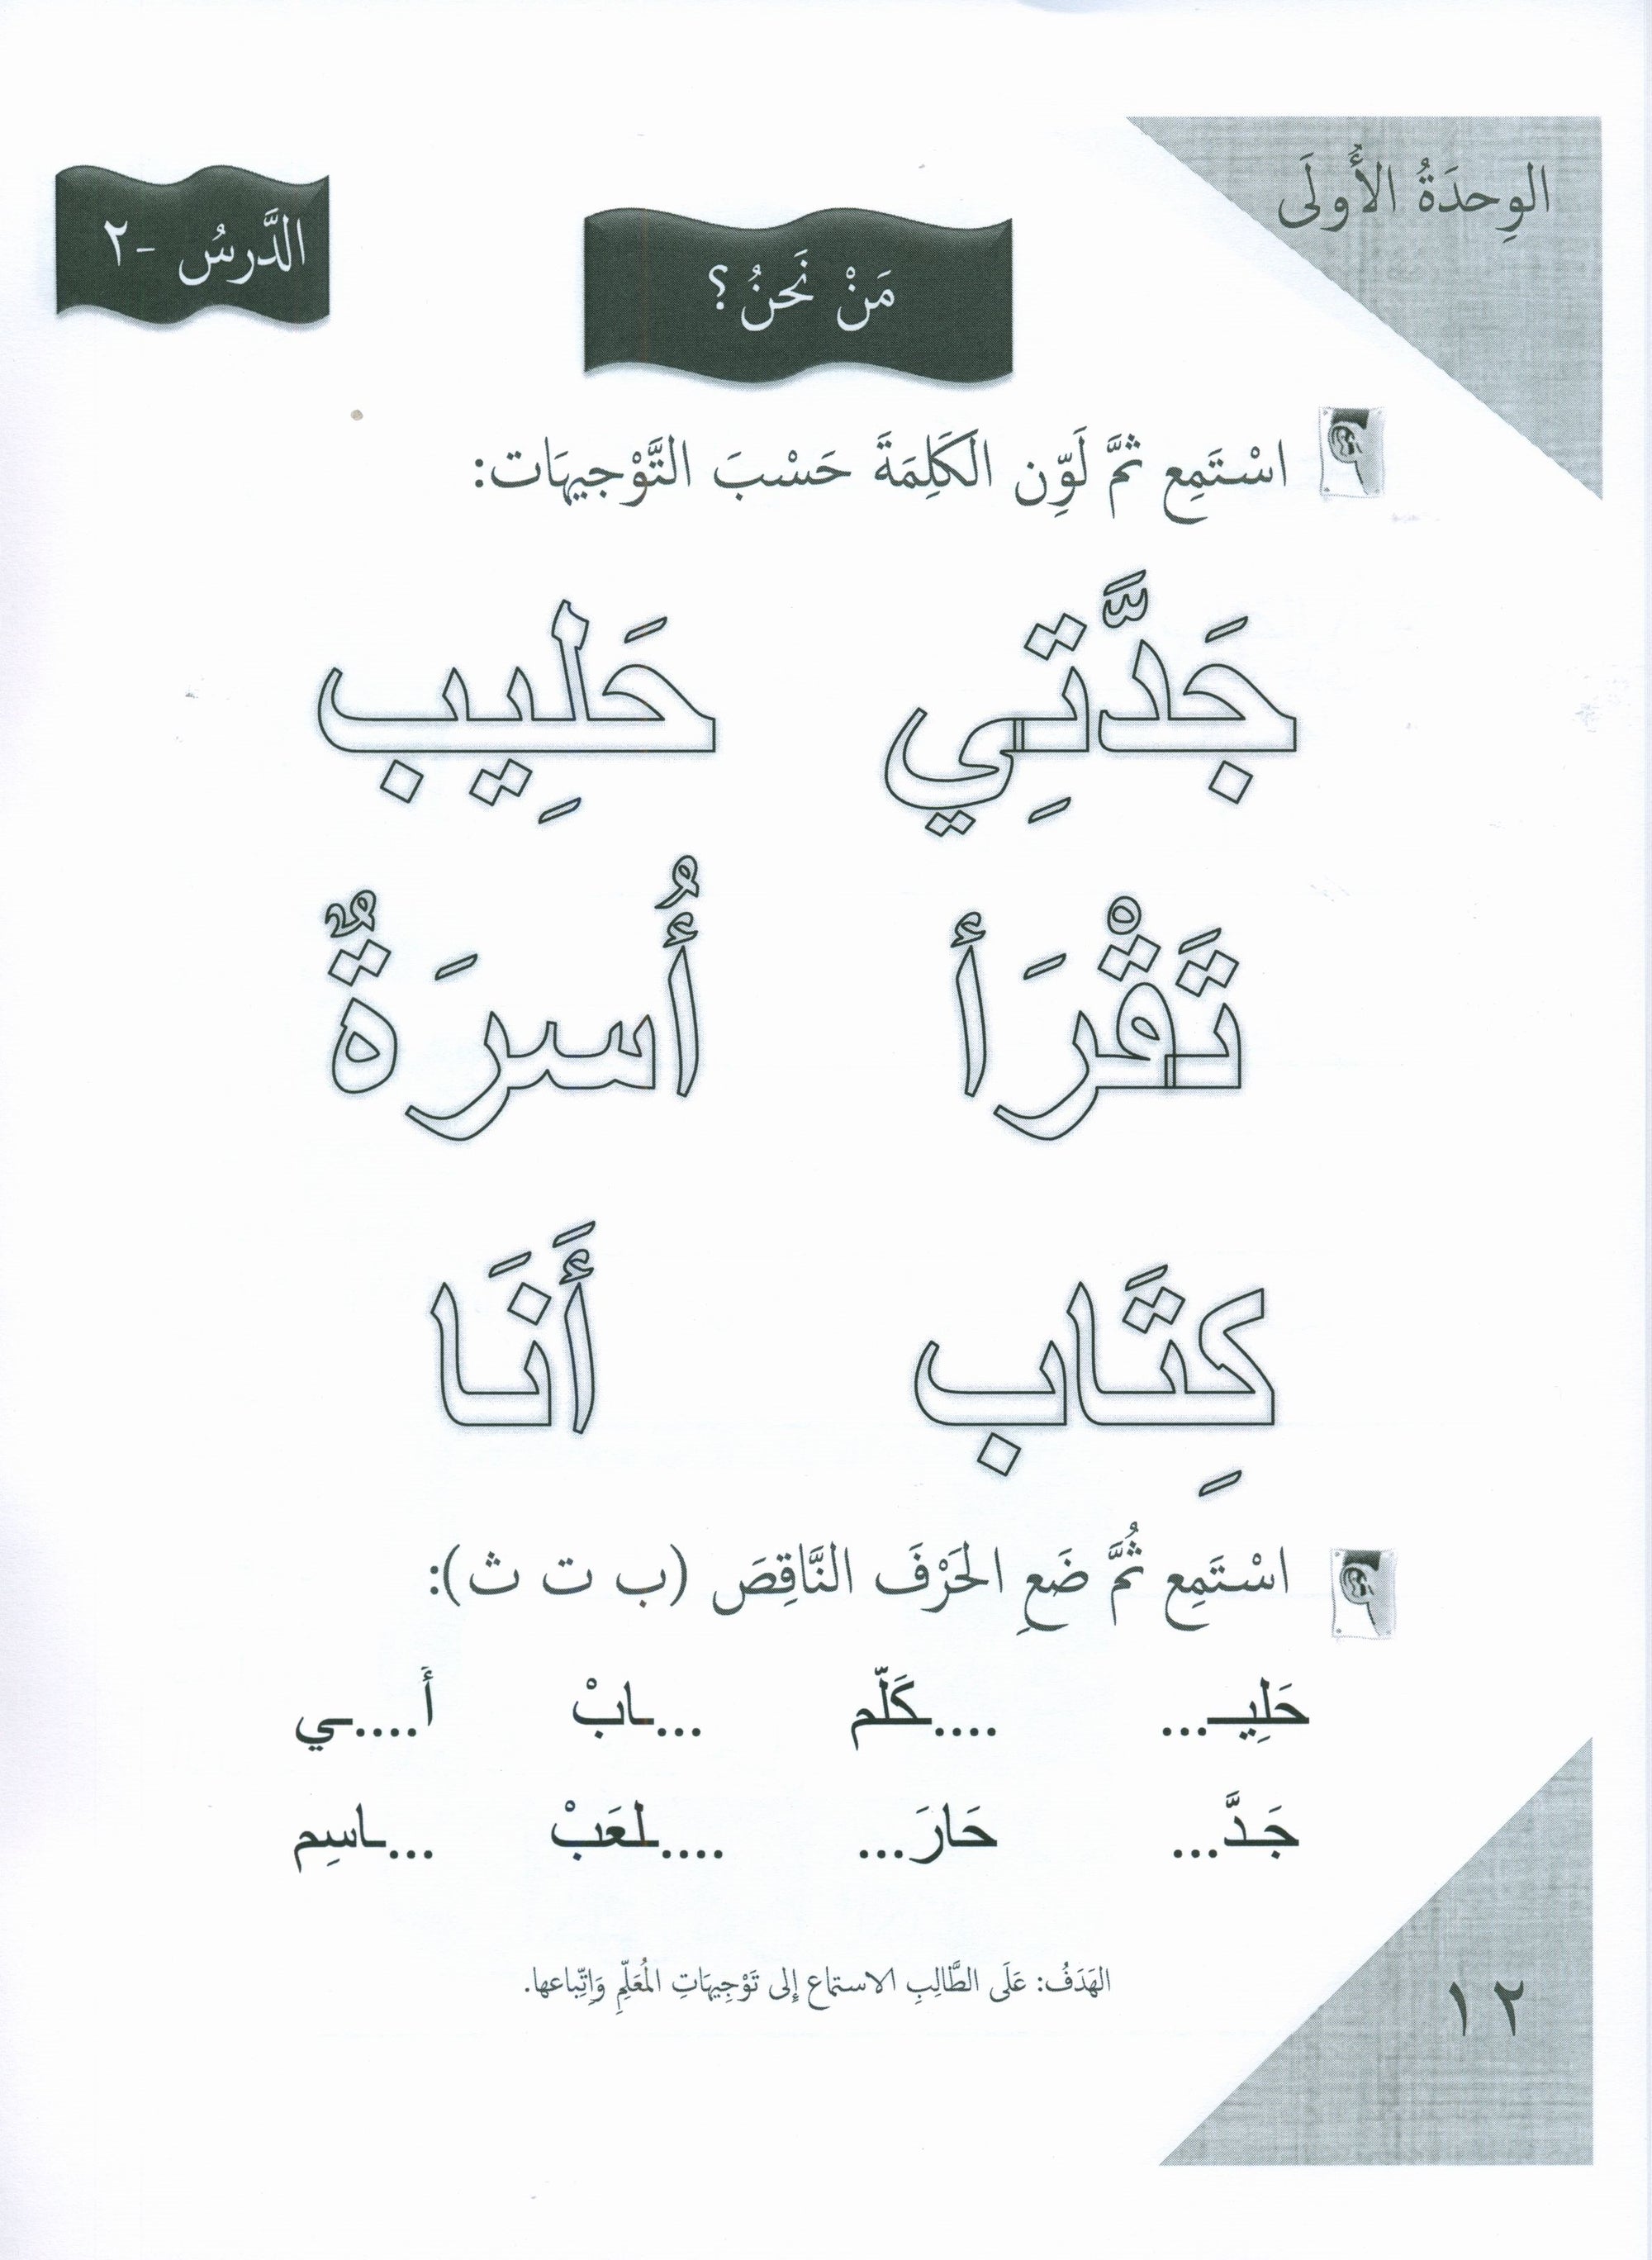 الوِحدَةُ الأُولَى
الدَّرسُ -٢
مَنْ نَحنُ؟
اسْتَمِع ثمَّ لَوِّن الكَلِمَةَ حَسْبَ التَّوْجيهَات:
جَدَّتِي حَلِيب
تَقْرَأ أُسرَةٌ
كِتَاب أَنَا
اسْتَمِع ثُمَّ ضَعِ الحَرْفَ النَّاقِصَ (ب ت ث):
حَلِيـ... ....ـكَلّم ...ـابْ أَ....ـي
جَـدَّ... حَارَ... ....ـلعَبْ ...ـاسِم
الهَدَفُ: عَلَى الطَّالِبِ الاستماع إِلى تَوْجِيهَاتِ المُعَلِّمِ وَاِتِّباعها.
١٢